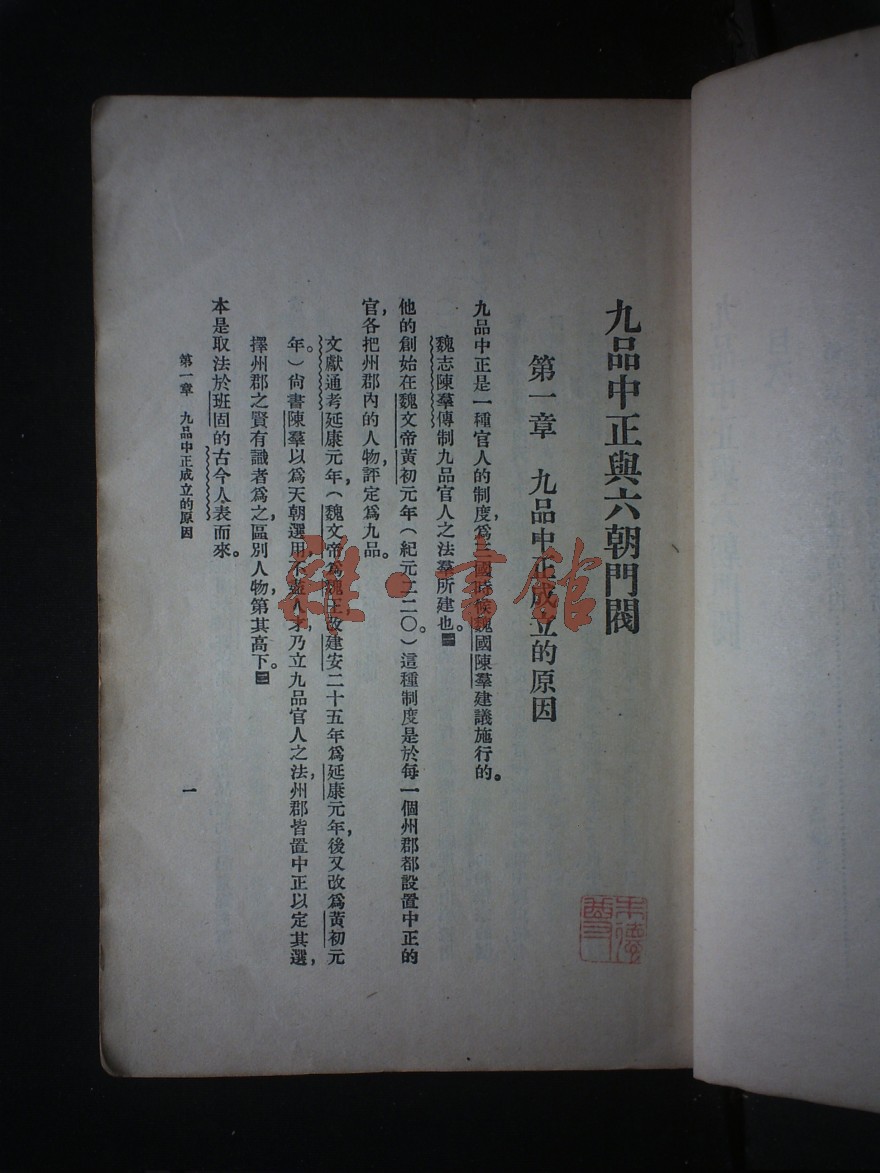 九品中正與六朝門閥
第一章　九品中正成立的原因
九品中正是一種官人的制度，爲三國時候魏國陳羣建議施行的。
魏志陳羣傳制九品官人之法羣所建也。㊀
他的創始在魏文帝黃初元年（紀元二二〇）。這種制度是於每一個州郡都設置中正的
官，各把州郡內的人物，評定爲九品。
文獻通考延康元年，（魏文帝爲魏王，改建安二十五年爲延康元年，後又改爲黃初元
年。）尙書陳羣以爲天朝選用不盡人才，乃立九品官人之法，州郡皆置中正以定其選，
擇州郡之賢有識者爲之，區別人物，第其高下。㊁
本是取法於班固的古今人表而來。
第一章　九品中正成立的原因
一
雜·書館